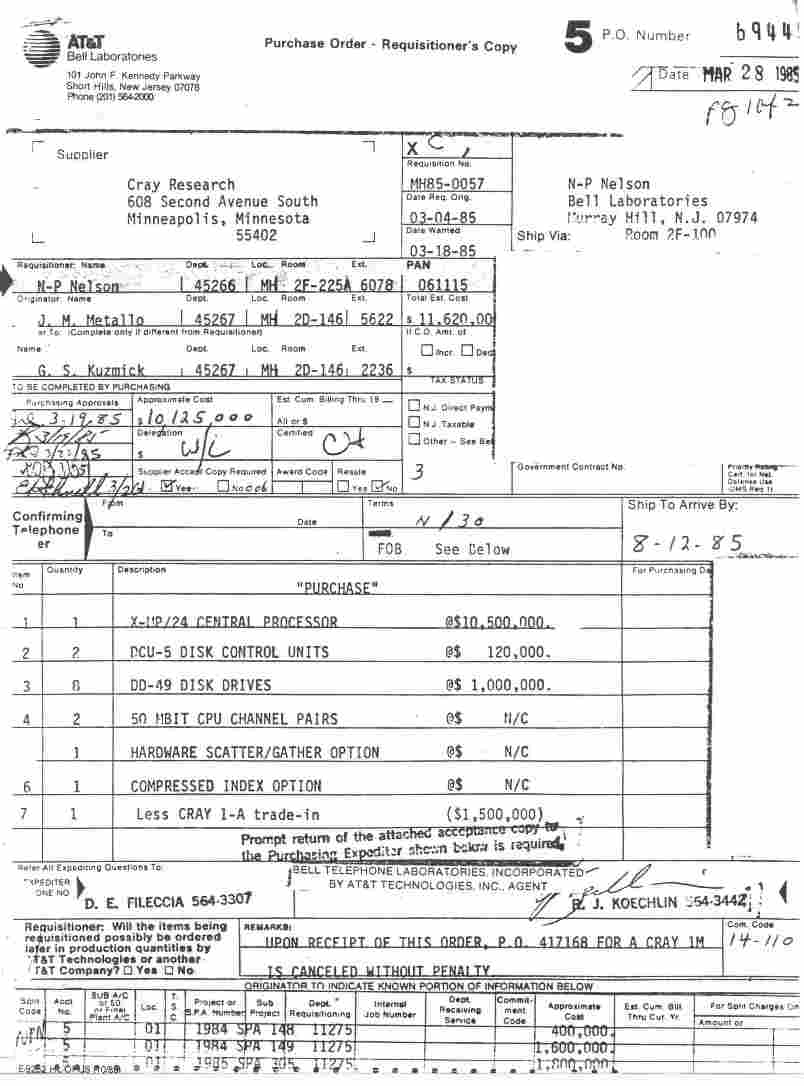 AT&T
Bell Laboratories
101 John F. Kennedy Parkway
Short Hills, New Jersey 07078
Phone (201) 564-2000
Purchase Order - Requisitioner's Copy
5 P.O. Number 6944
Date MAR 28 1985
Supplier
Cray Research
608 Second Avenue South
Minneapolis, Minnesota
55402
X C
Requisition No.
MH85-0057
Date Req. Orig.
03-04-85
Date Wanted
03-18-85
N-P Nelson
Bell Laboratories
Murray Hill, N.J. 07974
Ship Via: Room 2F-100
Requisitioner: Name Dept. Loc. Room Ext. PAN
N-P Nelson 45266 MH 2F-225A 6078 061115
Originator: Name Dept. Loc. Room Ext. Total Est. Cost
J. M. Metallo 45267 MH 2D-146 5622 $ 11,620,00
or To: (Complete only if different from Requisitioner)
Name Dept. Loc. Room Ext.
Incr. Dec
G. S. Kuzmick 45267 MH 2D-146 2236 $
TO BE COMPLETED BY PURCHASING TAX STATUS
Purchasing Approvals Approximate Cost Est. Cum. Billing Thru 19
3-19-85 $ 10,125,000 All or $
Delegation Certified
3/21/85 $
N.J. Direct Paym
N.J. Taxable
Other - See Be
Supplier Accept Copy Required Award Code Resale
Yes No Yes No
3
Government Contract No.
Priority Rating
Confirming
Telephone
er
From
To
Date
Terms
N/30
FOB See Below
Ship To Arrive By:
8-12-85
Item
No
Quantity Description For Purchasing De
"PURCHASE"
1 1 X-MP/24 CENTRAL PROCESSOR @$10,500,000.
2 2 DCU-5 DISK CONTROL UNITS @$ 120,000.
3 8 DD-49 DISK DRIVES @$ 1,000,000.
4 2 50 MBIT CPU CHANNEL PAIRS @$ N/C
1 HARDWARE SCATTER/GATHER OPTION @$ N/C
6 1 COMPRESSED INDEX OPTION @$ N/C
7 1 Less CRAY 1-A trade-in ($1,500,000)
Prompt return of the attached acceptance copy to
the Purchasing Expediter shown below is required.
Refer All Expediting Questions To:
EXPEDITER
ONE NO
D. E. FILECCIA 564-3307
BELL TELEPHONE LABORATORIES, INCORPORATED
BY AT&T TECHNOLOGIES, INC., AGENT
R. J. KOECHLIN 564-3442
Requisitioner: Will the items being
requisitioned possibly be ordered
later in production quantities by
AT&T Technologies or another
AT&T Company? Yes No
REMARKS:
UPON RECEIPT OF THIS ORDER, P.O. 417168 FOR A CRAY 1M
IS CANCELED WITHOUT PENALTY
Com. Code
14-110
ORIGINATOR TO INDICATE KNOWN PORTION OF INFORMATION BELOW
Split
Code
Acct
No.
SUB A/C
or 50
or Final
Plant A/C
Loc.
T.
S.
C.
Project or
S.P.A. Number
Sub
Project
Dept.
Requisitioning
Internal
Job Number
Dept.
Receiving
Service
Commit-
ment
Code
Approximate
Cost
Est. Cum. Bill.
Thru Cur. Yr.
For Split Charges On
Amount or
5 01 1984 SPA 148 11275 400,000.
5 01 1984 SPA 149 11275 1,600,000.
5 01 1985 SPA 305 11275 1,800,000.